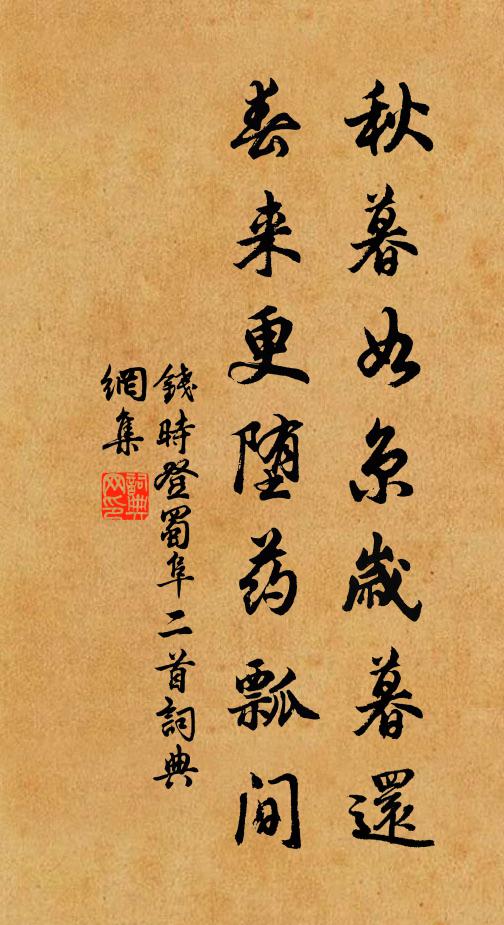 秋暮如京歲暮還
春来更堕药瓢间
錢時登蜀阜二首詞典
網集
詞典
网印